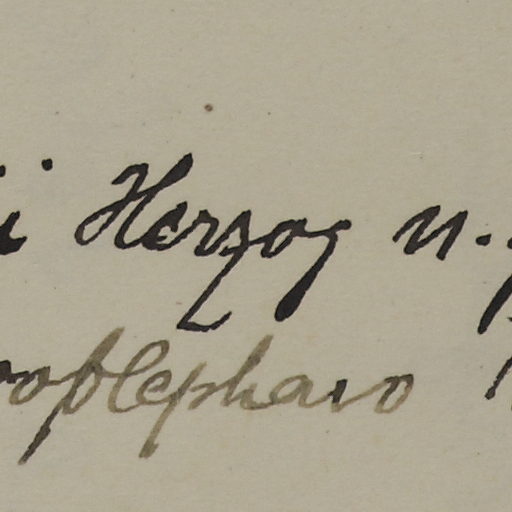 ii Herzog n.
roblepharo